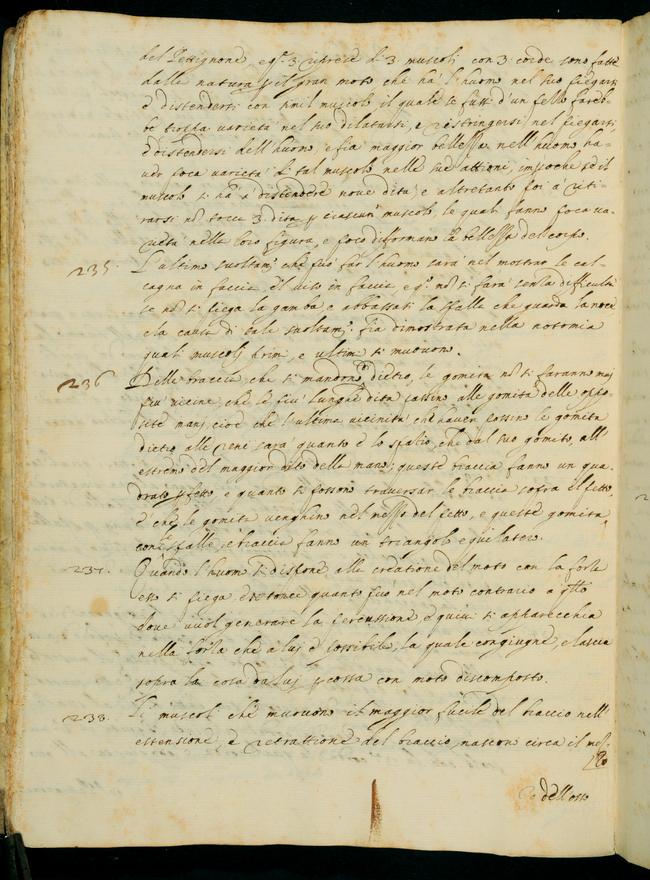 del Pettignone, e q.ti 3 riprese di 3 muscoli con 3 corde sono fatte
dalla natura p il gran moto che ha l'huomo nel suo piegarsi
e distendersi con simil muscolo il quale se fusse d'un pezzo fareb-
be troppa varietà nel suo dilatarsi, e restringersi nel piegarsi,
e distendersi dell'huomo, e fia maggior bellezza nell'huomo ha-
ver poca varietà di tal muscolo nelle sue attioni; impoche se il
muscolo si ha a distendere nove dita; e altretanto poi a riti-
rarsi nō tocca 3 dita p ciascun muscolo, le quali fanno poca va-
rietà nella loro figura, e poco diformano la bellezza del corpo.
235. L'ultimo svoltam.to che può far l'huomo sarà nel mostrar le cal-
cagna in faccia, e 'l viso in faccia e q.to nō si farà senza difficultà
se nō si piega la gamba, e abbassasi la spalla che guarda la nuca
e la causa di tale svoltam.to fia dimostrata nella notomia
quali muscoli primi, e ultimi si muovono.
236 Delle braccia, che si mandono dietro, le gomita nō si faranno mai
più vicine, che le più lunghe dita passino alle gomita delle oppo-
site mani, cioè che l'ultima vicinità che haver possino le gomita
dietro alle reni sarà quanto è lo spatio, che dal suo gomito, all'
estremo del maggior dito della mano; queste braccia fanno un qua-
drato pfetto e quanto si possono traversar le braccia sopra il petto
è che le gomita venghino nel mezzo del petto, e queste gomita,
con le spalle, e braccia fanno un triangolo equilatero.
237. Quando l'huom si dispone alla creatione del moto con la forza
esso si piega e si torce quanto può nel moto contrario a q.llo
dove vuol generare la percussione e quivi si apparecchia
nella forza che a lui è possibile, la quale congiugne, e lascia
sopra la cosa da lui pcossa con moto discomposto.
238. Li muscoli che muovono il maggior fucile del braccio nell'
estensione, e retrattione del braccio, nascono circa il mez-
zo
zo dell'osso